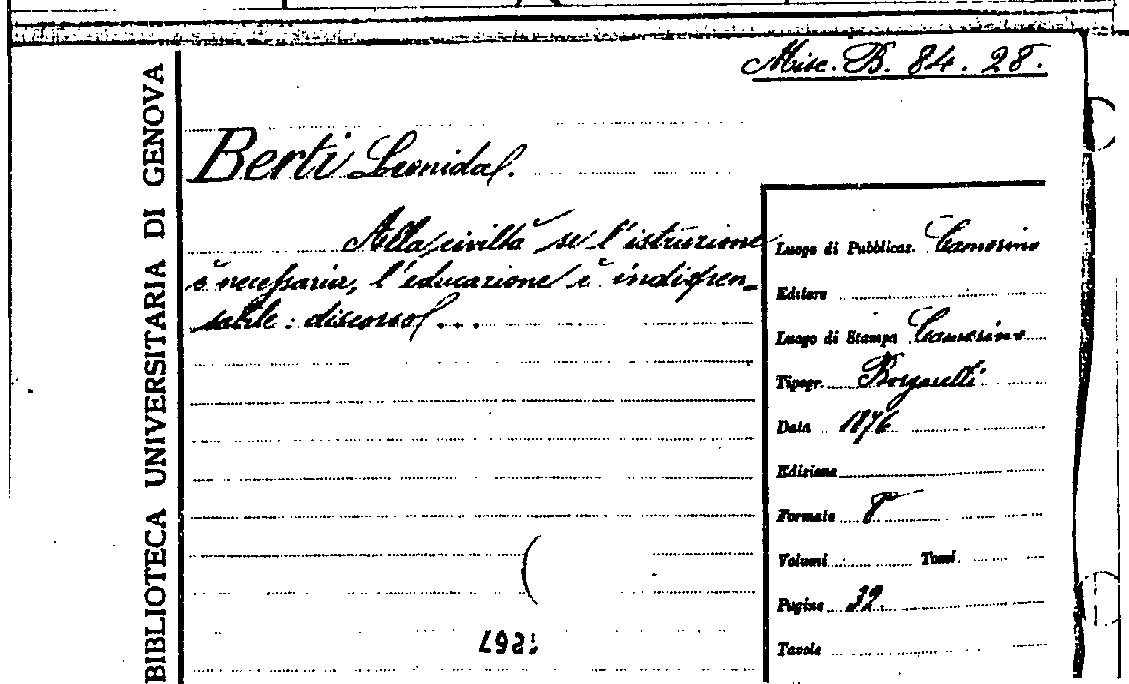 BIBLIOTECA UNIVERSITARIA DI GENOVA
Misc. B. 84. 28.
Berti Leonida.
Alla civiltà se l'istruzione
è necessaria, l'educazione è indispen-
sabile: discorso...
Luogo di Pubblicaz. Camerino
Editore
Luogo di Stampa Camerino
Tipogr. Borgarelli
Data 1876
Edizione
Formato 8°
Volumi Tomi
Pagine 32
Tavole